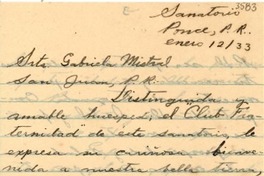 3583
Sanatorio
Ponce, P.R.
enero 12/33
Srta Gabriela Mistral
San Juan, P.R.
Distinguida y
amable huesped, el Club "Fra-
ternidad" de este sanatorio, le
expresa su cariñosa bienve-
nida a nuestra bella tierra,